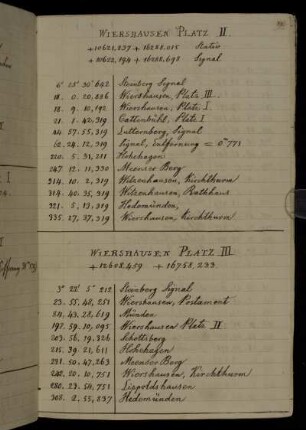 WIERSHAUSEN PLATZ II.
+10621,837 +16288.015 Statio
+10622,194 +16288,698 Signal
6° 23' 30" 642 Steinberg Signal
18. 0. 20,236 Wiershausen, Platz III.
18. 9. 10,192 Wiershausen, Platz I
21. 1. 42,319 Cattenbühl, Platz I
44 57. 55,319 Lutternberg, Signal
60 24. 12,319 Signal, Entfernung = 0m771
220. 5. 31,211 Hohehagen
247 12. 11,330 Meensee Berg
314 10. 2,319 Witzenhausen, Kirchthurm
314 40. 35,319 Witzenhausen, Rathhaus
321. 5. 13,319 Hedemünden,
335. 27. 27,319 Wiershausen, Kirchthurm
WIERSHAUSEN PLATZ III.
+12608.459 +16758.233
3° 22' 5" 212 Steinberg Signal
23. 55. 48,251 Wiershausen, Postament
54, 43. 28,619 Münden
197. 59. 10,095 Wiershausen Platz II.
203. 56. 19,326 Schottsberg
215. 39. 21,611 Hohehagen
231. 50. 47,263 Meensee Berg
242. 20. 10,751 Wiershausen, Kirchthurm
280. 23. 54,751 Lippoldshausen
308. 2. 55,837 Hedemünden